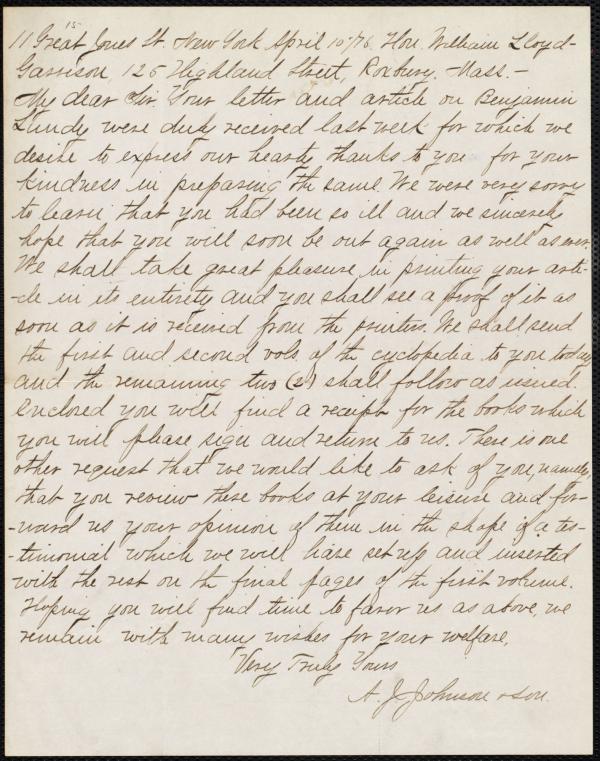 15
11 Great Jones St. New York April 10/76. Hon. William Lloyd-
Garrison, 125 Highland Street, Roxbury, Mass.-
My dear Sir Your letter and article on Benjamin
Lundy were duly received last week for which we
desire to express our hearty thanks to you for your
kindness in preparing the same. We were very sorry
to learn that you had been so ill and we sincerely
hope that you will soon be out again as well as ever.
We shall take great pleasure in printing your arti-
-cle in its entirety and you shall see a proof of it as
soon as it is received from the printers. We shall send
the first and second vols. of the cyclopedia to you today
and the remaining two (2) shall follow as issued.
Enclosed you will find a receipt for the books which
you will please sign and return to us. There is one
other request that we would like to ask of you, namely,
that you review these books at your leisure and for-
-ward us your opinion of them in the shape of a tes-
-timonial which we will have set up and inserted
with the rest on the final pages of the first volume.
Hoping you will find time to favor us as above, we
remain with many wishes for your welfare,
Very Truly Yours
A. J. Johnson & Son.